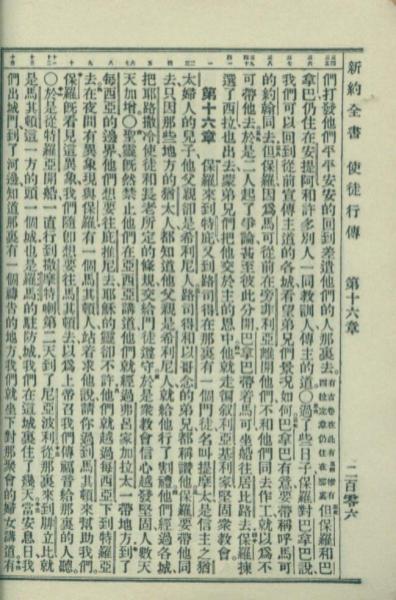 新約全書 使徒行傳 第十六章 二百零六
們打發他們平平安安的回到差遣他們的人那裏去。有古卷在此有惟有西拉定意仍住在那裏但保羅和巴
拿巴仍住在安提阿和許多別人一同教訓人傳主的道○過了些日子保羅對巴拿巴說、
我們可以回到從前宣傳主道的各城看望弟兄們景況如何巴拿巴有意要帶稱呼馬可
的約翰同去但保羅因爲馬可從前在旁非利亞離開他們不和他們同去作工就以爲不
可帶他去於是二人起了爭論甚至彼此分開巴拿巴帶着馬可坐船往居比路去保羅揀
選了西拉也出去蒙弟兄們把他交於主的恩中他就走徧叙利亞基利家堅固衆教會。
第十六章 保羅來到特庇又到路司得在那裏有一個門徒名叫提摩太是信主之猶
太婦人的兒子他父親卻是希利尼人路司得和以哥念的弟兄都稱讚他保羅要帶他同
去只因那些地方的猶太人都知道他父親是希利尼人就給他行了割禮他們經過各城、
把耶路撒冷使徒和長老所定的條規交給門徒遵守於是衆教會信心越發堅固人數天
天加增○聖靈既然禁止他們在亞西亞講道他們就經過弗呂家加拉太一帶地方到了
每西亞的邊界他們想要往庇推尼去耶穌的靈卻不許他們就越過每西亞下到特羅亞
去在夜間有異象現與保羅有一個馬其頓人站着求他說請你過到馬其頓來幫助我們。
保羅既看見這異象我們隨卽想要往馬其頓去以爲上帝召我們傳福音給那裏的人聽。
○於是從特羅亞開船一直行到撒摩特喇第二天到了尼亞波利從那裏來到腓立比就
是馬其頓這一方的頭一個城也是羅馬的駐防城我們在這城裏住了幾天當安息日我
們出城門到了河邊知道那裏有一個禱告的地方我們就坐下對那聚會的婦女講道有